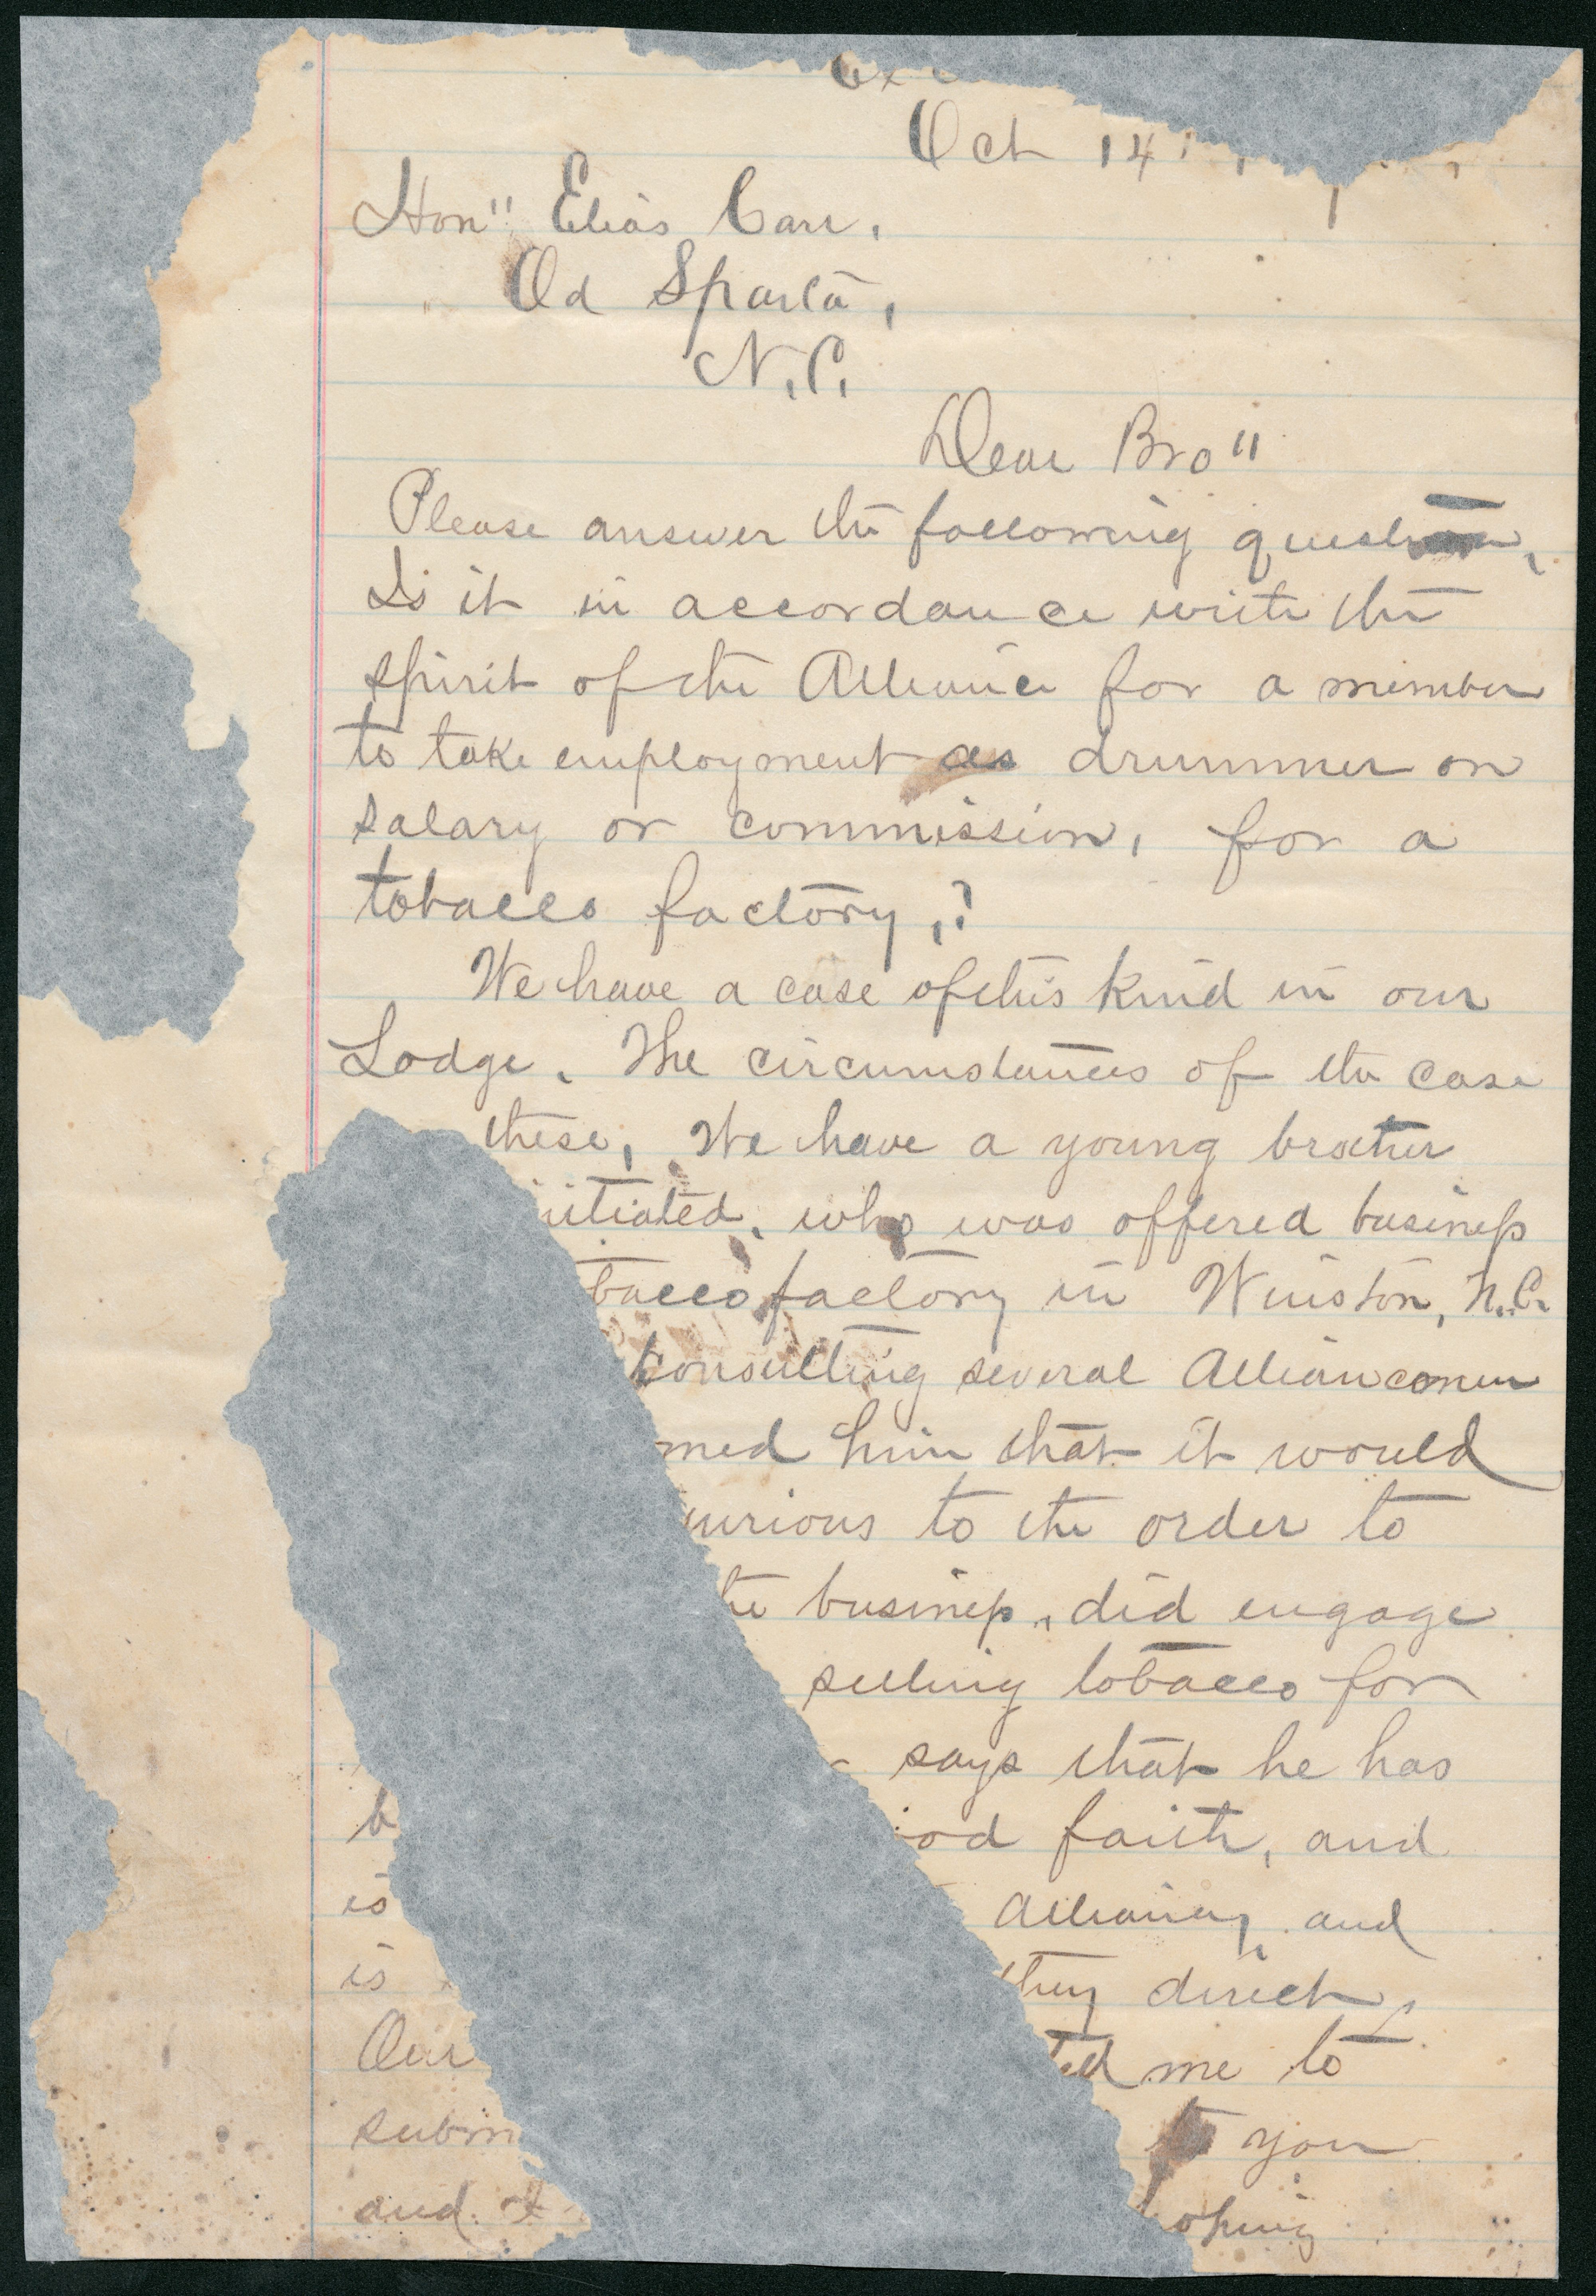 Oct 14
Hon" Elias Carr,
Old Sparta,
N.C.
Dear Bro"
Please answer the following question,
Is it in accordance with the
spirit of the Alliance for a member
to take employment as drummer on
salary or commission, for a
tobacco factory,?
We have a case of this kind in our
Lodge. The circumstances of the case
these, We have a young brother
itiated, who was offered business
bacco factory in Winston, N.C.
consulting several Alliancemen
med him that it would
urious to the order to
he business, did engage
selling tobacco for
says that he has
b od faith, and
is Alliance, and
is they direct,
Our ted me to
subm to you
and I hoping